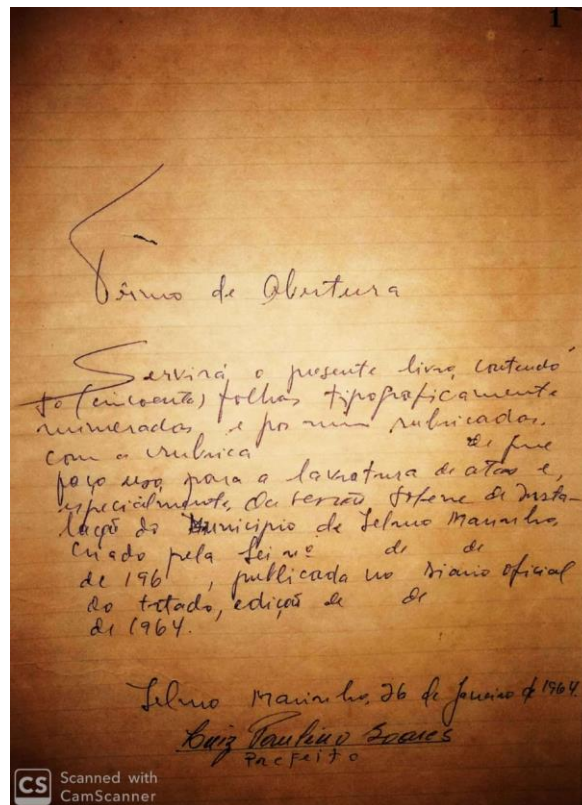 1
Têrmo de Abertura
Servirá o presente livro, contendo
50 (cincoenta) folhas tipograficamente
numeradas e por mim rubricadas.
com a rubrica de que
faço uso, para a lavratura de atas e,
especialmente, da sessão solene de insta-
lação do Município de Ielmo Marinho,
criado pela Lei nº de de
de 196 , publicada no Diario Oficial
do Estado, edição de de
de 1964.
Ielmo Marinho, 26 de Janeiro de 1964.
Luiz Paulino Soares
Prefeito
CS Scanned with
CamScanner